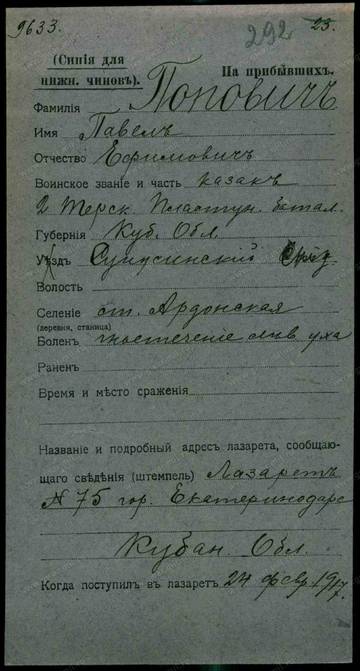 9633. 292 23.
(Синія для
нижн. чиновъ).
На прибывшихъ.
Фамилія Поповичъ
Имя Павелъ
Отчество Ефимовичъ
Воинское званіе и часть казакъ
2 Терск. Пластун. батал.
Губернія Куб. Обл.
Уѣздъ Сунженскій
Волость
Селеніе ст. Ардонская
(деревня, станица)
Боленъ гноетеченіе лѣв уха
Раненъ
Время и мѣсто сраженія
Названіе и подробный адресъ лазарета, сообщаю-
щаго свѣдѣнія (штемпель) Лазаретъ
№ 75 гор. Екатеринодаръ
Кубан. Обл.
Когда поступилъ въ лазаретъ 24 февр 1917.